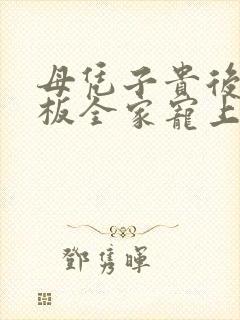 母凭子貴後
板全家寵上
鄧雋暉